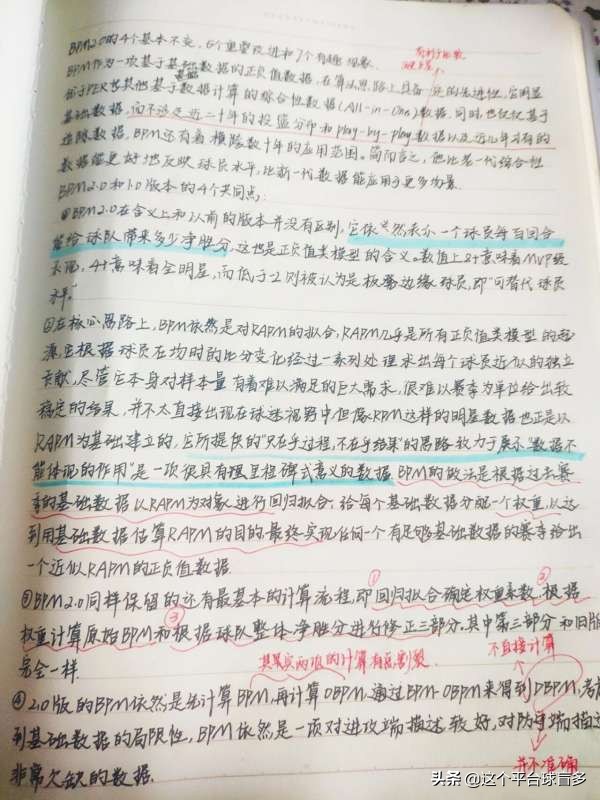 BPM2.0的4个基本不变, 6个重要改进和7个有趣现象.
BPM作为一项基于基础数据的正负值数据, 在算法思路上具备一定的先进性, 它明显
优于PER与其他基于数据计算的综合性数据(All-in-One)数据, 同时也仅仅基于
基础数据, 而不涉及近二十年的投篮分布和play-by-play数据以及近几年才有的
追踪数据, BPM还有着横跨数十年的应用范围. 简而言之, 他比老一代综合性
数据能更好地反映球员水平, 比新一代数据能应用于更多场景.
BPM2.0和1.0版本的4个共同点:
①BPM2.0在含义上和以前的版本并没有区别, 它依然表示一个球员每百回合
能给球队带来多少净胜分, 这也是正负值类模型的含义. 数值上8+意味着MVP级
表现, 4+意味着全明星, 而低于-2则被认为是板凳边缘球员, 即"可替代球员
水平."
②在核心思路上, BPM依然是对RAPM的拟合, RAPM几乎是所有正负值类模型的起
源, 它根据球员在场时的比分变化经过一系列处理求出每个球员近似的独立
贡献, 尽管它本身对样本量有着难以满足的巨大需求, 很难以赛季为单位给出较
稳定的结果, 并不太直接出现在球迷视野中, 但像RPM这样的明星数据也正是以
RAPM为基础建立的, 它所提供的"只在乎过程, 不在乎结果"的思路致力于展示"数据不
能体现的作用"是一项很具有里程碑式意义的数据. BPM的做法是根据过去赛
季的基础数据以RAPM为对象进行回归拟合, 给每个基础数据分配一个权重, 以达
到用基础数据估算RAPM的目的, 最终实现任何一个有足够基础数据的赛季给出
一个近似RAPM的正负值数据.
① ②
③BPM2.0同样保留的还有最基本的计算流程, 即回归拟合确定权重系数, 根据
③
权重计算原始BPM和根据球队整体净胜分进行修正三部分, 其中第三部分和旧版
完全一样.
其实前两项的计算有区别
不直接计算
④2.0版的BPM依然是先计算BPM, 再计算OBPM, 通过BPM-OBPM来得到DBPM, 考虑
到基础数据的局限性, BPM依然是一项对进攻端描述较好, 对防守端描述
非常欠缺的数据.
并不准确
头条 @这个平台球盲多